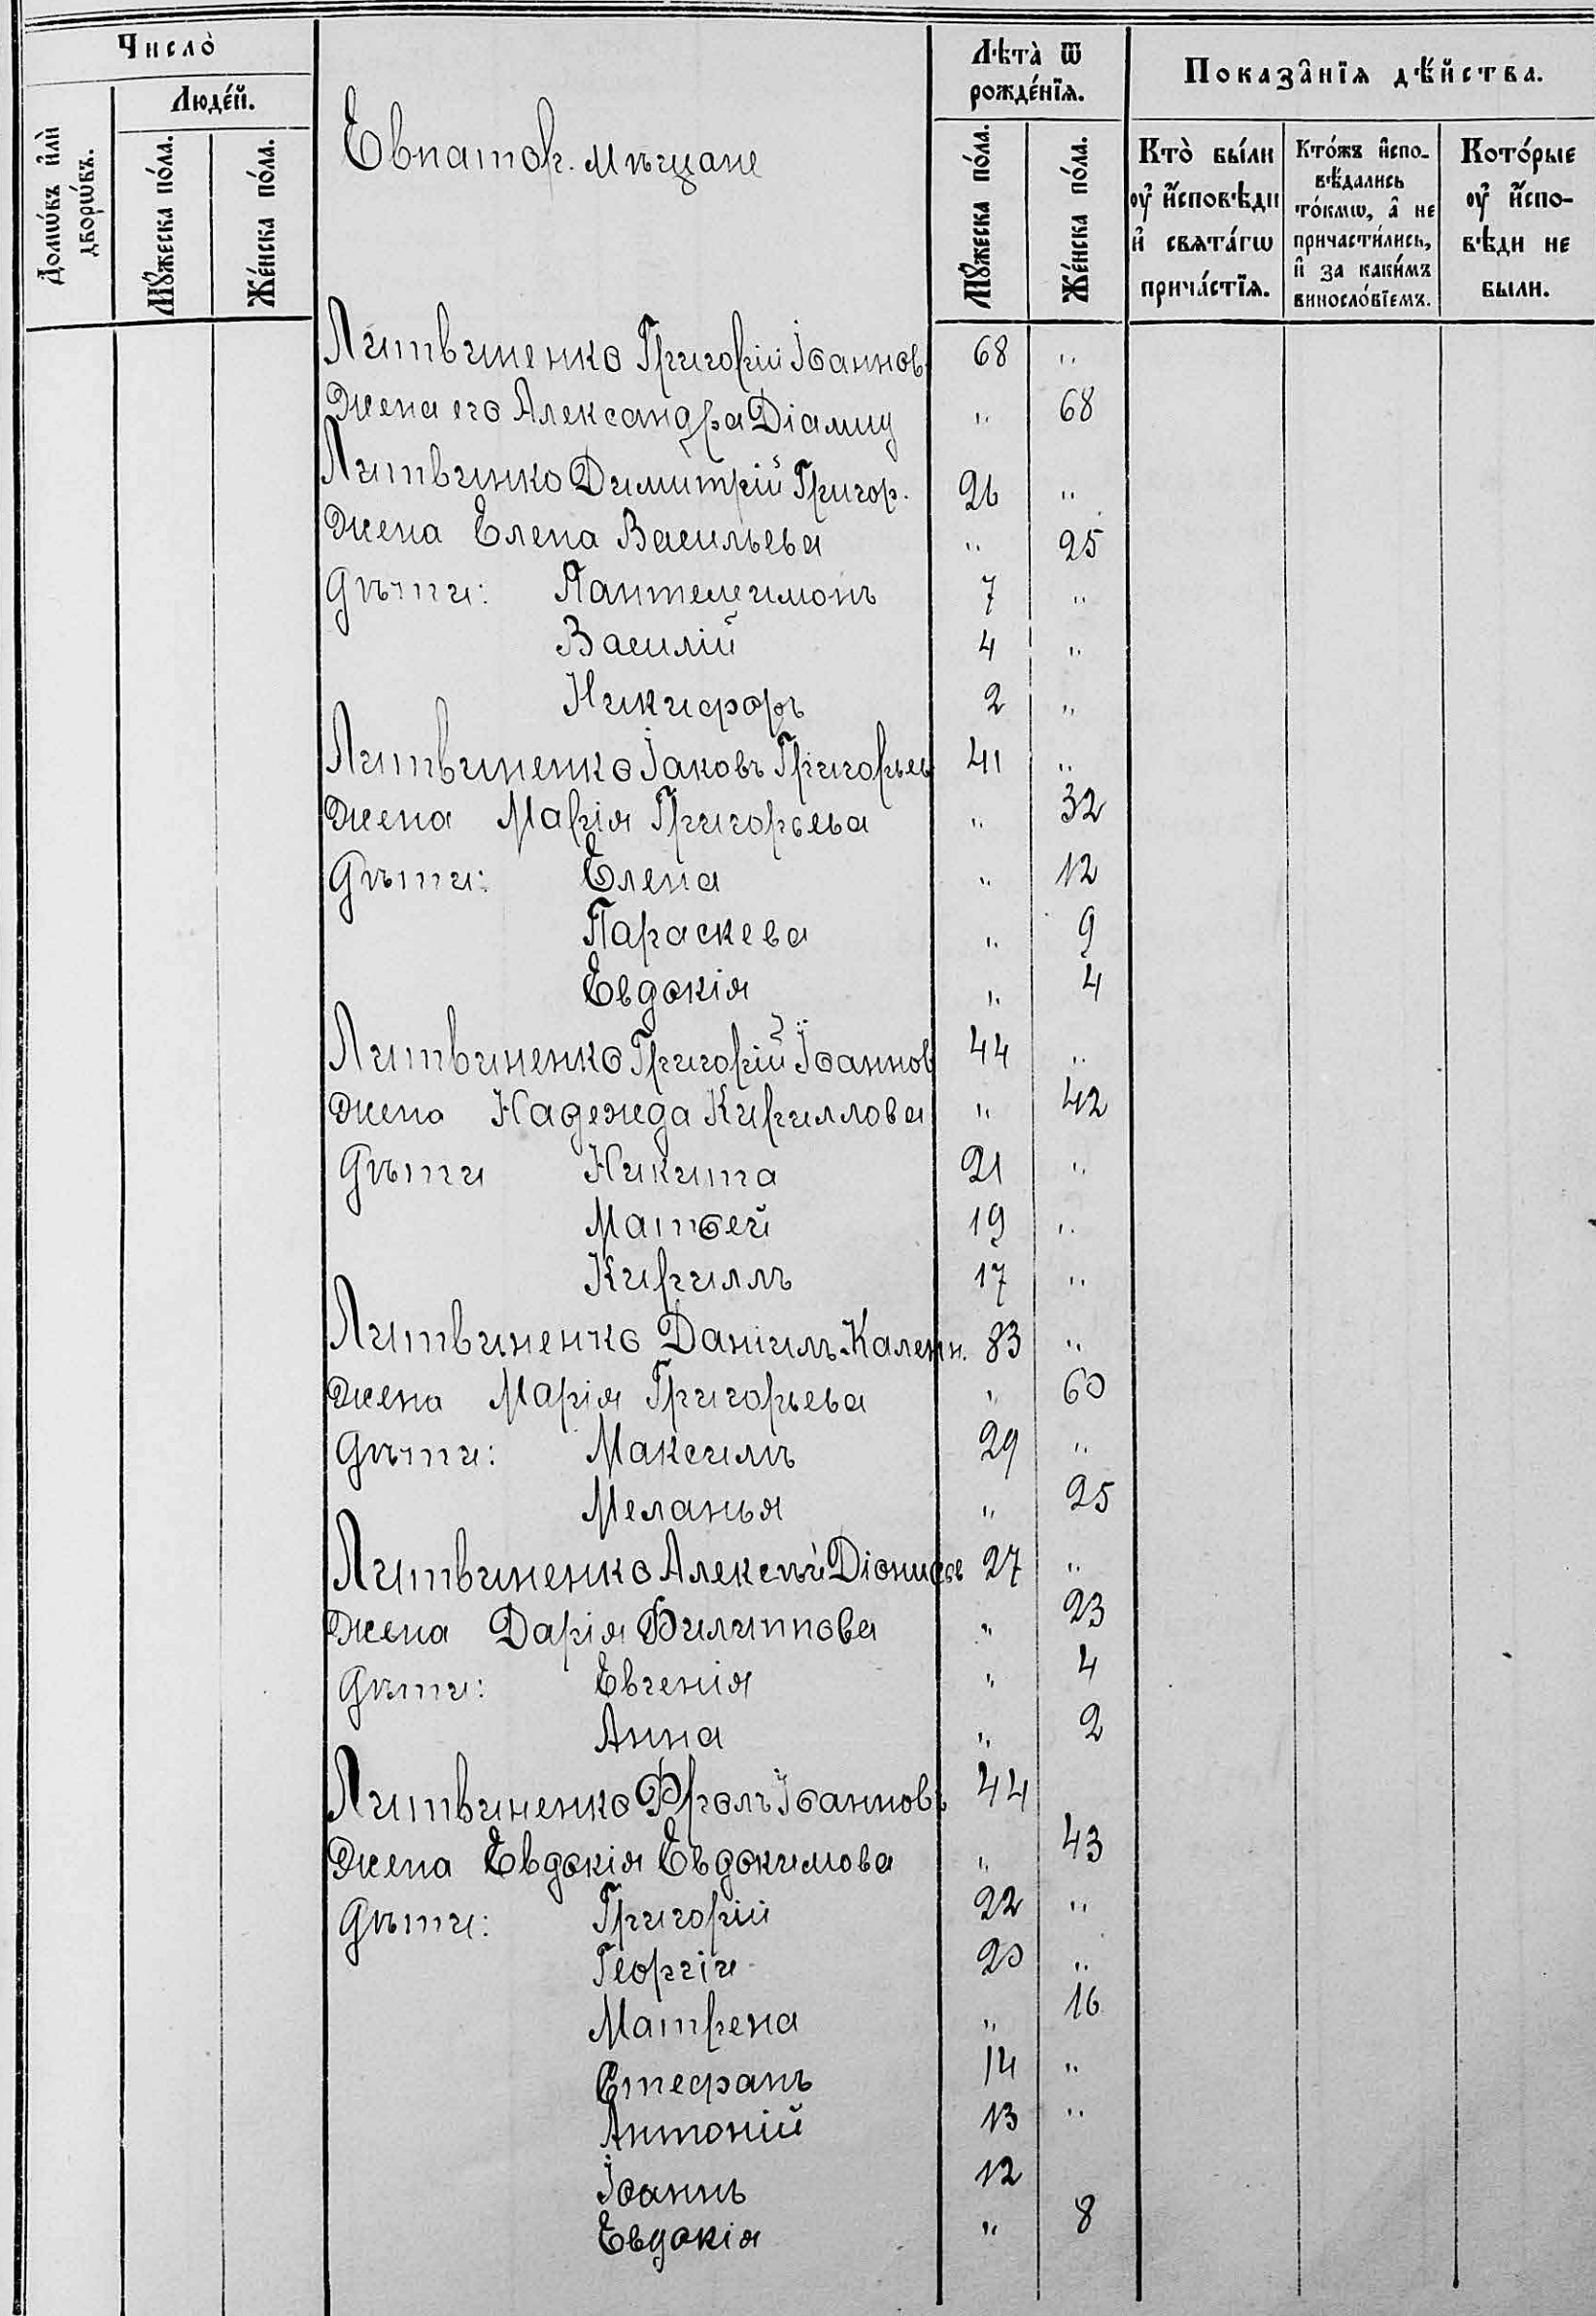 Число̀
Людéй.
Домѡ́въ и҆лѝ дворѡ́въ.
Мꙋ́жеска по́ла.
Же́нска по́ла.
Лѣта̀ ѿ рожде́нїѧ.
Мꙋ́жеска по́ла.
Же́нска по́ла.
Показа̑нїѧ дѣ́йства.
Кто̀ бы́ли оу҆ и҆́сповѣди и҆ свѧта́гѡ прича́стїѧ.
Кто́жъ и҆спо-вѣ́дались то́кмѡ, а҆ не причасти́лись, и҆ за каки́мъ винослѡ́вїемъ.
Кото́рые оу҆ и҆́спо-вѣди не были.
Евпатор. мѣщане
Литвиненко Григорій Іоаннов. 68 "
Жена его Александра Діамид " 68
Литвинко Димитрій Григор. 26 "
Жена Елена Васильева " 25
Дѣти: Пантелеимонъ 7 "
Василій 4 "
Никифоръ 2 "
Литвиненко Іаковъ Григорьев 41 "
Жена Марія Григорьева " 32
Дѣти: Елена " 12
Параскева " 9
Евдокія " 4
Литвиненко Григорій Іоаннов 44 "
Жена Надежда Кириллова " 42
Дѣти Никита 21 "
Матѳей 19 "
Кириллъ 17 "
Литвиненко Даніилъ Каленн. 83 "
Жена Марія Григорьева " 60
Дѣти: Максимъ 29 "
Меланья " 25
Литвиненко Алексѣй Діонисов 27 "
Жена Дарія Филиппова " 23
Дѣти: Евгенія " 4
Анна " 2
Литвиненко Фролъ Іоанновъ 44
Жена Евдокія Евдокимова " 43
Дѣти: Григорій 22 "
Георгій 20 "
Матрена " 16
Стефанъ 14 "
Антоній 13 "
Іоаннъ 12
Евдокія " 8